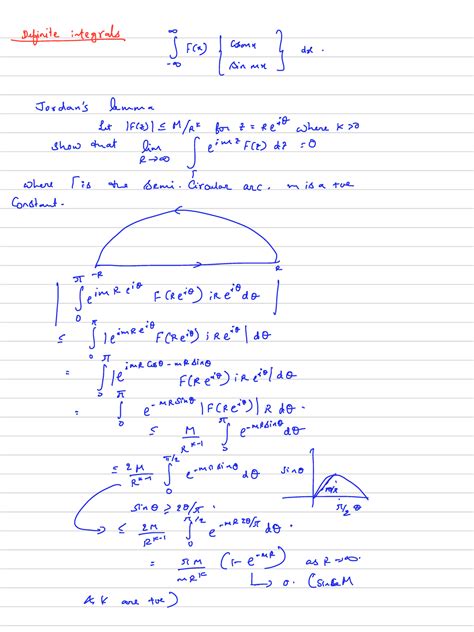 Definite integrals
∞ ∫ -∞ F(x) { cosmx sin mx } dx .
Jordan's lemma
Let |F(z)| ≤ M/R^k for z = Re^{iθ} where k>0
Show that lim R→∞ ∫_Γ e^{imz} F(z) dz = 0
where Γ is the Semi-Circular arc. m is a +ve
Constant.
-R R
| ∫_0^π e^{imRe^{iθ}} F(Re^{iθ}) iRe^{iθ} dθ |
≤ ∫_0^π |e^{imRe^{iθ}} F(Re^{iθ}) i Re^{iθ}| dθ
= ∫_0^π |e^{imR cosθ - mR sinθ} F(Re^{iθ}) i Re^{iθ}| dθ
= ∫_0^π e^{-mR sinθ} |F(Re^{iθ})| R dθ.
≤ M/R^{k-1} ∫_0^π e^{-mR sinθ} dθ
≤ 2M/R^{k-1} ∫_0^{π/2} e^{-mR sinθ} dθ
sinθ
π/2 θ
sinθ ≥ 2θ/π.
≤ 2M/R^{k-1} ∫_0^{π/2} e^{-mR2θ/π} dθ.
= πM/mR^k (1 - e^{-mR}) as R→∞.
→ 0. (since M
& k are +ve)